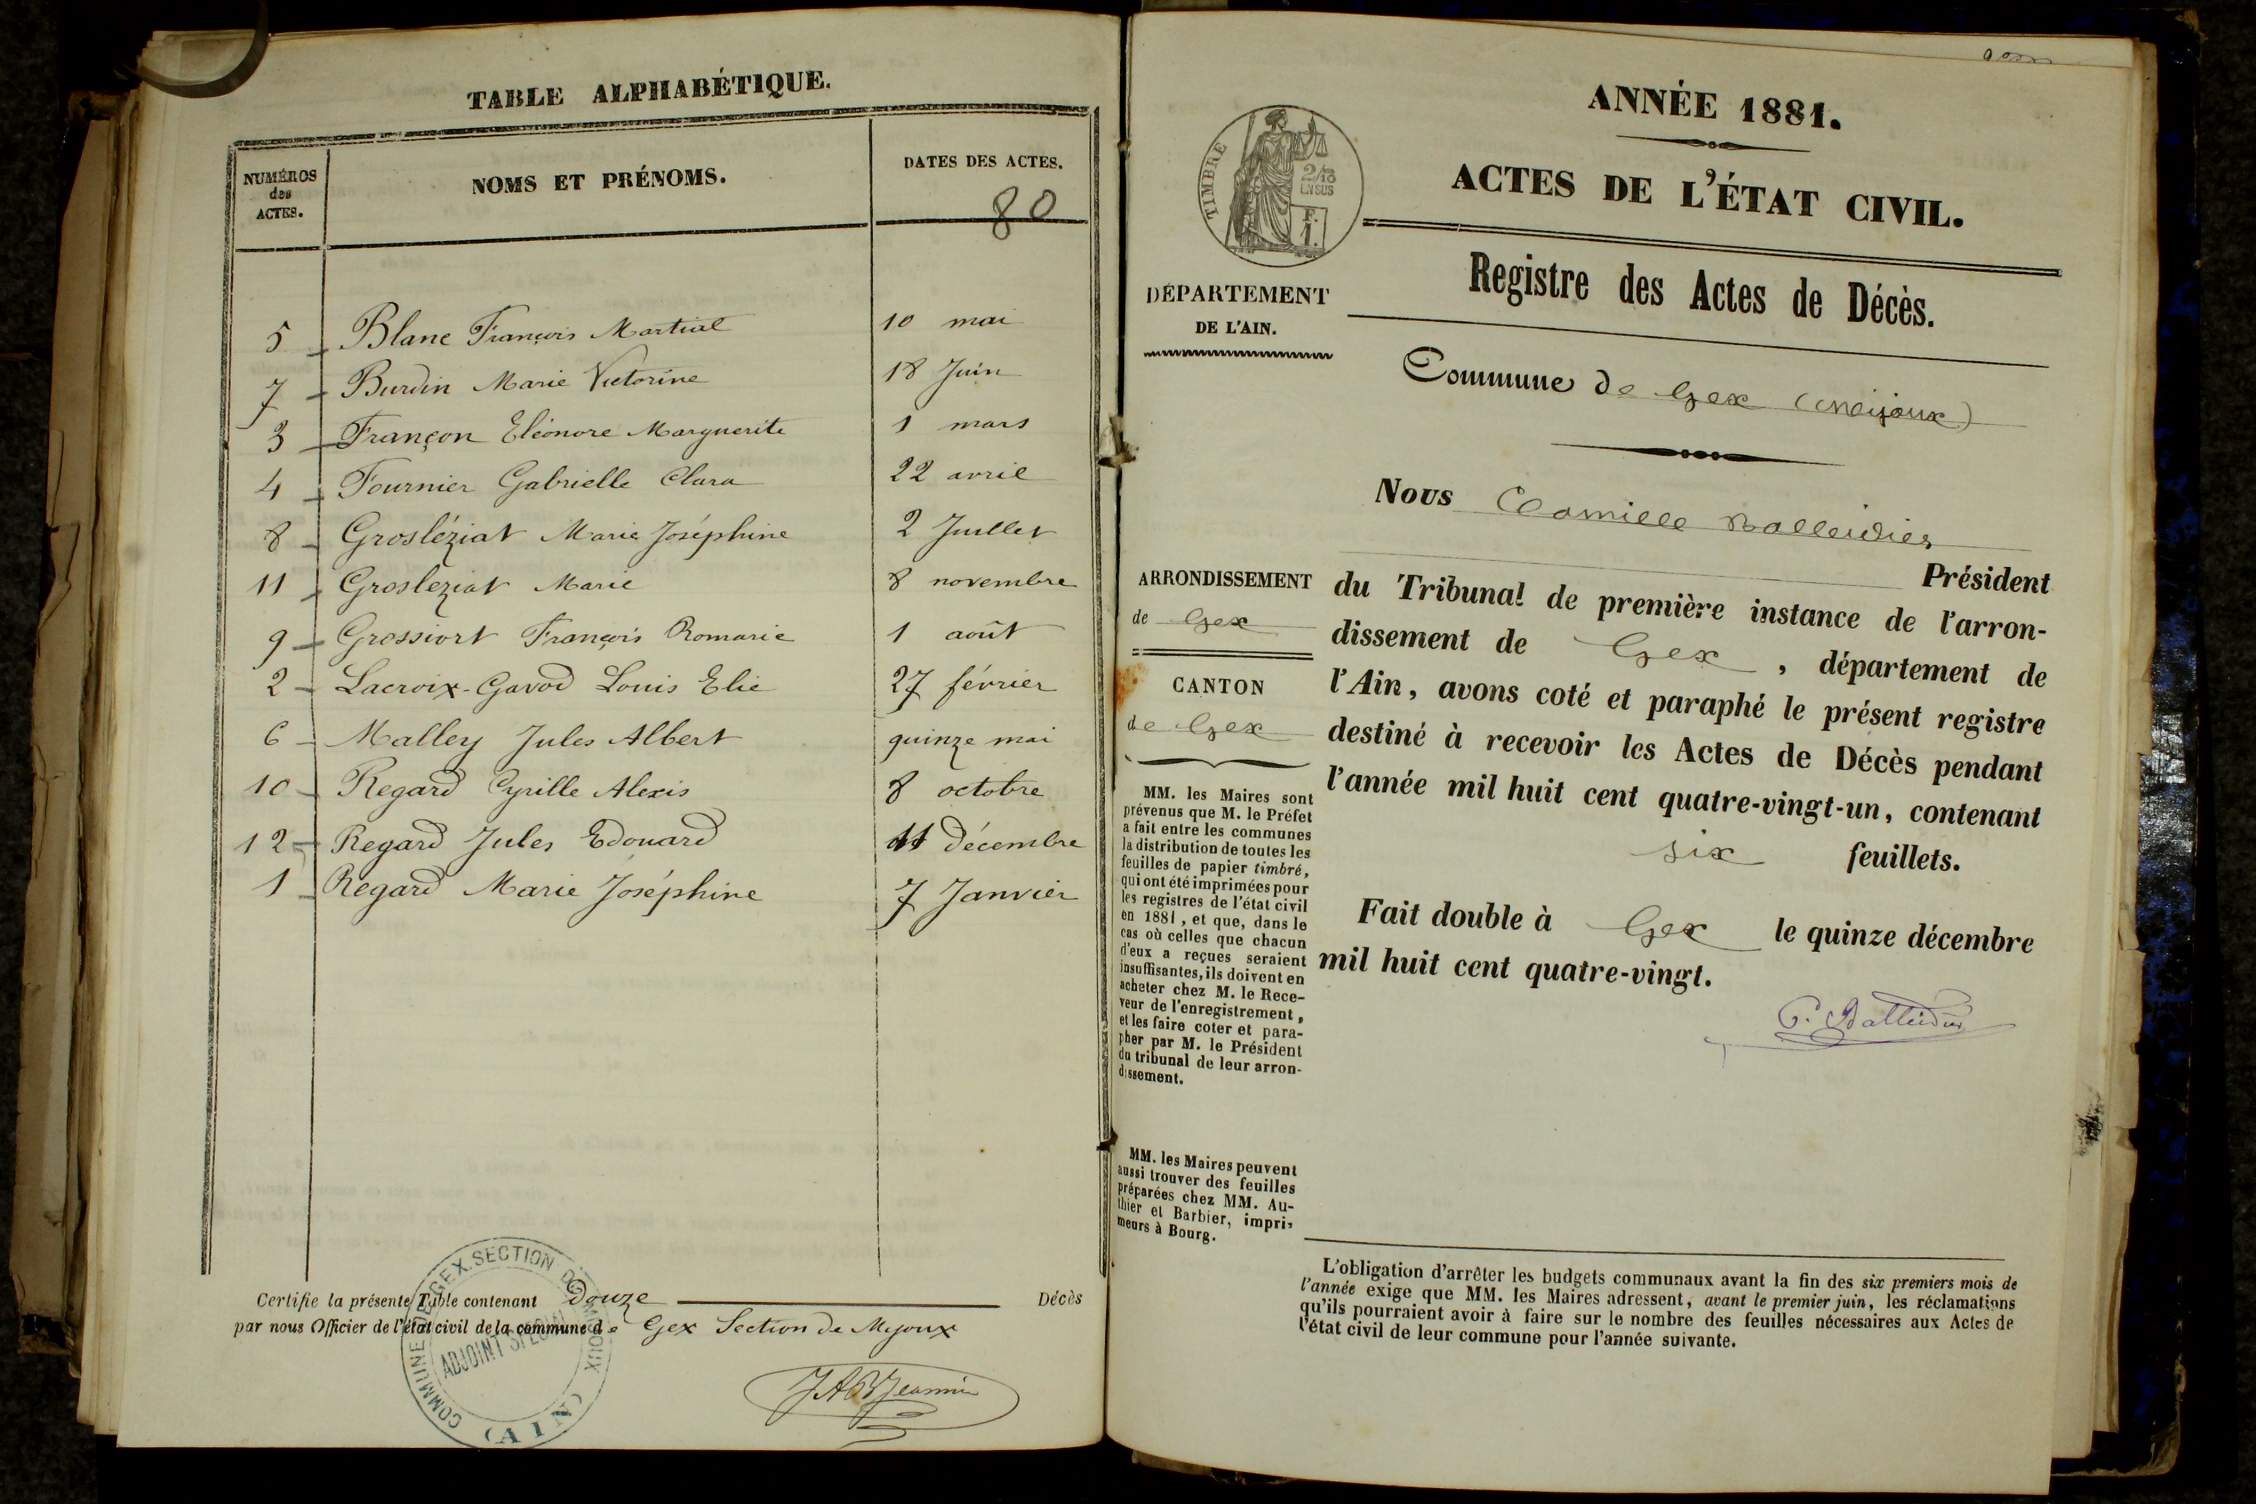 TABLE ALPHABÉTIQUE.
NUMÉROS
des
ACTES.
NOMS ET PRÉNOMS.
DATES DES ACTES.
80
5 Blanc François Martial 10 mai
7 Burdin Marie Victorine 18 Juin
3 Françon Eléonore Marguerite 1 mars
4 Fournier Gabrielle Clara 22 avril
8 Grosléziat Marie Joséphine 2 Juillet
11 Grosleziat Marie 8 novembre
9 Grossiort François Romarie 1 août
2 Lacroix-Gavod Louis Elie 27 février
6 Malley Jules Albert quinze mai
10 Regard Cyrille Alexis 8 octobre
12 Regard Jules Edouard 11 Décembre
1 Regard Marie Joséphine 7 Janvier
Certifie la présente Table contenant Douze Décès
par nous Officier de l'état civil de la commune de Gex Section de Mijoux
COMMUNE DE GEX. SECTION DE MIJOUX
ADJOINT SPÉCIAL
(AIN)
JAB Jeannin
ANNÉE 1881.
ACTES DE L'ÉTAT CIVIL.
TIMBRE
2/10
EN SUS
F.
1.
Registre des Actes de Décès.
DÉPARTEMENT
DE L'AIN.
Commune de Gex (Mijoux)
Nous Camille Balleidier
Président
du Tribunal de première instance de l'arron-
dissement de Gex, département de
l'Ain, avons coté et paraphé le présent registre
destiné à recevoir les Actes de Décès pendant
l'année mil huit cent quatre-vingt-un, contenant
six feuillets.
Fait double à Gex le quinze décembre
mil huit cent quatre-vingt.
C. Balleidier
ARRONDISSEMENT
de Gex
CANTON
de Gex
MM. les Maires sont
prévenus que M. le Préfet
a fait entre les communes
la distribution de toutes les
feuilles de papier timbré,
qui ont été imprimées pour
les registres de l'état civil
en 1881, et que, dans le
cas où celles que chacun
d'eux a reçues seraient
insuffisantes, ils doivent en
acheter chez M. le Rece-
veur de l'enregistrement,
et les faire coter et para-
pher par M. le Président
du tribunal de leur arron-
dissement.
MM. les Maires peuvent
aussi trouver des feuilles
préparées chez MM. Au-
thier et Barbier, impri-
meurs à Bourg.
L'obligation d'arrêter les budgets communaux avant la fin des six premiers mois de
l'année exige que MM. les Maires adressent, avant le premier juin, les réclamations
qu'ils pourraient avoir à faire sur le nombre des feuilles nécessaires aux Actes de
l'état civil de leur commune pour l'année suivante.